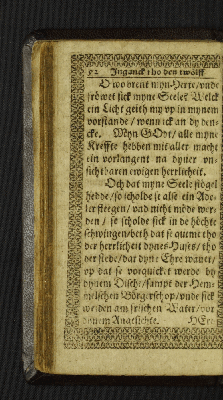 92 Inganck tho den twölff
O wo brent myn Herte/ vnde
fröwet sick myne Seele! Welck
ein Licht geith my vp in mynem
vorstande / wenn ick an dy den-
cke. Myn GOtt/ alle myne
Kreffte hebben mit aller macht
ein vorlangent na dyner vn-
sichtbaren ewigen herrlicheit.
Och dat myne Seele flögel
hedde/ so scholde se alse ein Ade-
ler flegen/ vnd nicht möde wer-
den / se scholde sick in de höchte
schwingen/ beth dat se queme tho
der herrlicheit dynes Huses/ tho
der stede/ dar dyne Ehre wanet/
vp dat se vorquicket werde by
dynem Dische/ sampt der Hem-
melschen Börgerschop/ vnde sick
weiden am frischen Water/ vor
dynem Angesichte. HErr